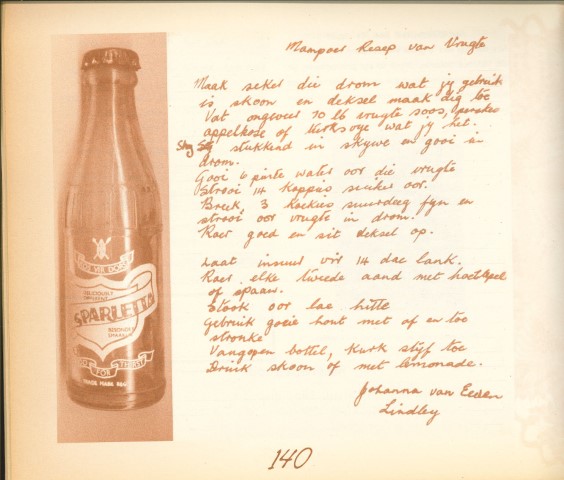 Mampoer Resep van Vrugte
Maak seker die drom wat jy gebruik
is skoon en deksel maak dig toe
Vat ongeveer 10 lb vrugte soos, perskes
appelkose of Kersoye wat jy het.
Sny stukkend in skywe en gooi in
drom.
Gooi 6 pinte water oor die vrugte
Strooi 14 koppies suiker oor.
Breek 3 koekies suurdeeg fyn en
strooi oor vrugte in drom.
Roer goed en sit deksel op.
Laat insuur vir 14 dae lank.
Roer elke tweede aand met houtlepel
of spaan.
Stook oor lae hitte
Gebruik goeie hout met af en toe
stronke
Vangopen bottel, kurk styf toe
Drink skoon of met lemonade.
Johanna van Eeden
Lindley
SPARLETTA
FOR THIRST
TRADE MARK REG
140